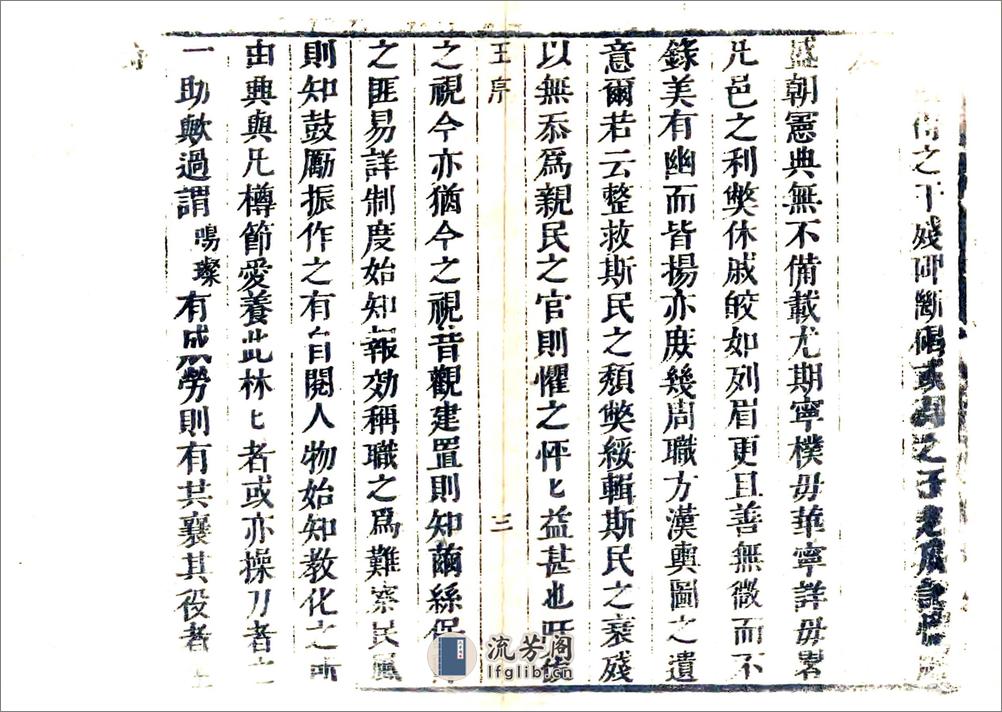 得之于殘碑斷碣或得之于老成記憶
盛朝憲典無不備載尤期寧樸毋華寧詳毋畧
凡邑之利獘休戚皎如列眉更且善無微而不
錄美有幽而皆揚亦庻幾周職方漢輿圖之遺
意爾若云整救斯民之頽獘綏輯斯民之衰殘
以無忝爲親民之官則懼之怦匕益甚也旴後
王序 三
之視今亦猶今之視昔觀建置則知繭絲保
之匪易詳制度始知報効稱職之爲難察民風
則知鼓厲振作之有自閱人物始知教化之所
由典與凡樽節愛養此林匕者或亦操刀者之
一助歟過謂鳴璨有成勞則有其襄其役者
流芳阁
lfglib.cn